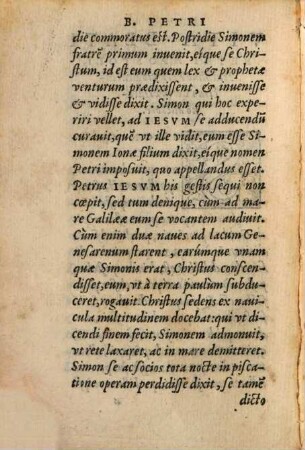 B. PETRI
die commoratus est. Postridie Simonem
fratrẽ primum invenit, eíque se Chri-
stum, id est eum quem lex & prophetæ
venturum prædixissent, & invenisse
& vidisse dixit. Simon qui hoc expe-
riri vellet, ad IESVM se adducendũ
curavit, quẽ vt ille vidit, eum esse Si-
monem Ionæ filium dixit, eíque nomen
Petri imposuit, quo appellandus esset.
Petrus IESVM his gestis sequi non
cœpit, sed tum denique, cùm ad ma-
re Galilææ eum se vocantem audivit.
Cùm enim duæ naues ad lacum Gene-
sarenum starent, earúmque vnam
quæ Simonis erat, Christus conscen-
disset, eum, vt à terra paulùm subdu-
ceret, rogauit. Christus sedens ex naui-
cula multitudinem docebat: qui vt di-
cendi finem fecit, Simonem admonuit,
vt rete laxaret, ac in mare demitteret.
Simon se ac socios tota nocte in pisca-
tione operam perdidisse dixit, se tamẽ
dicto